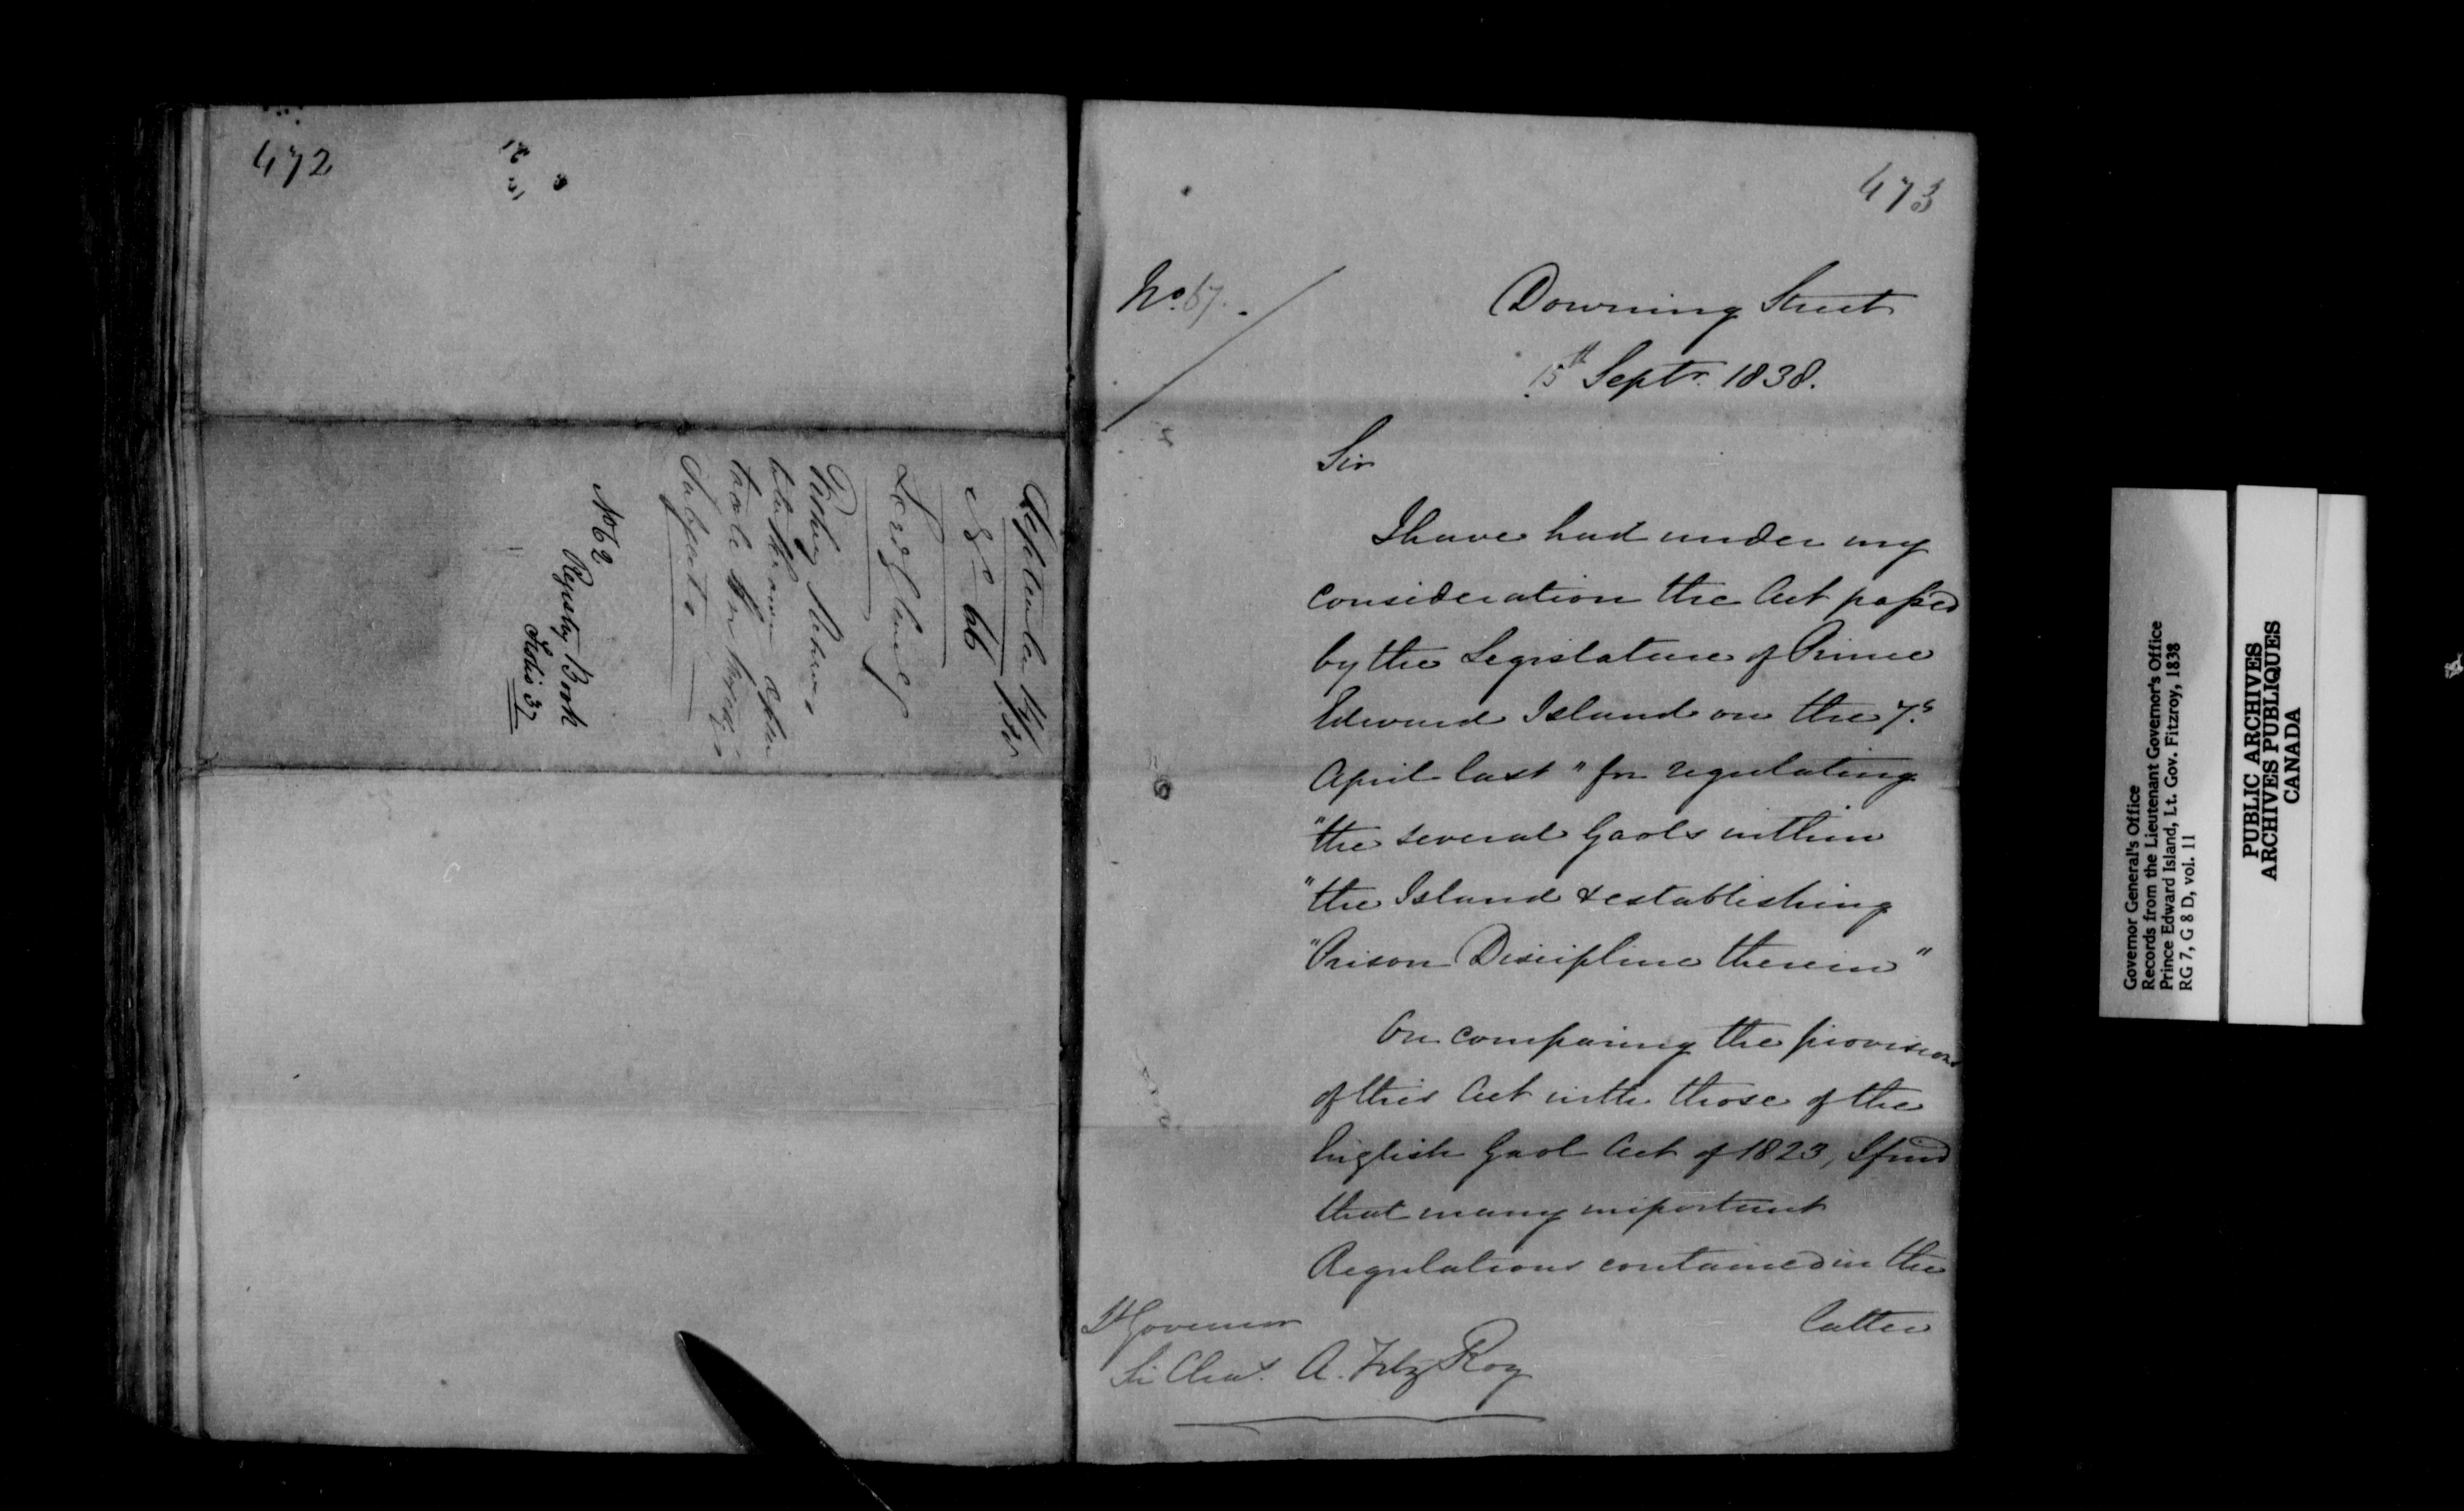 472
September 14/38
No 66
Lord Glenelg
Fishery
Subjects
No 62
Registry Book
Folio 37
473
No. 67.
Downing Street
15th Septr. 1838.
Sir
I have had under my
consideration the Act passed
by the Legislature of Prince
Edward Island on the 7th
April last "for regulating
"the several Gaols within
"the Island & establishing
"Prison Discipline therein"
On comparing the provisions
of this Act with those of the
English Gaol Act of 1823, I find
that many important
Regulations contained in the
latter
Lt Governor
Sir Chas. A. FitzRoy
Governor General's Office
Records from the Lieutenant Governor's Office
Prince Edward Island, Lt. Gov. Fitzroy, 1838
RG 7, G 8 D, vol. 11
PUBLIC ARCHIVES
ARCHIVES PUBLIQUES
CANADA